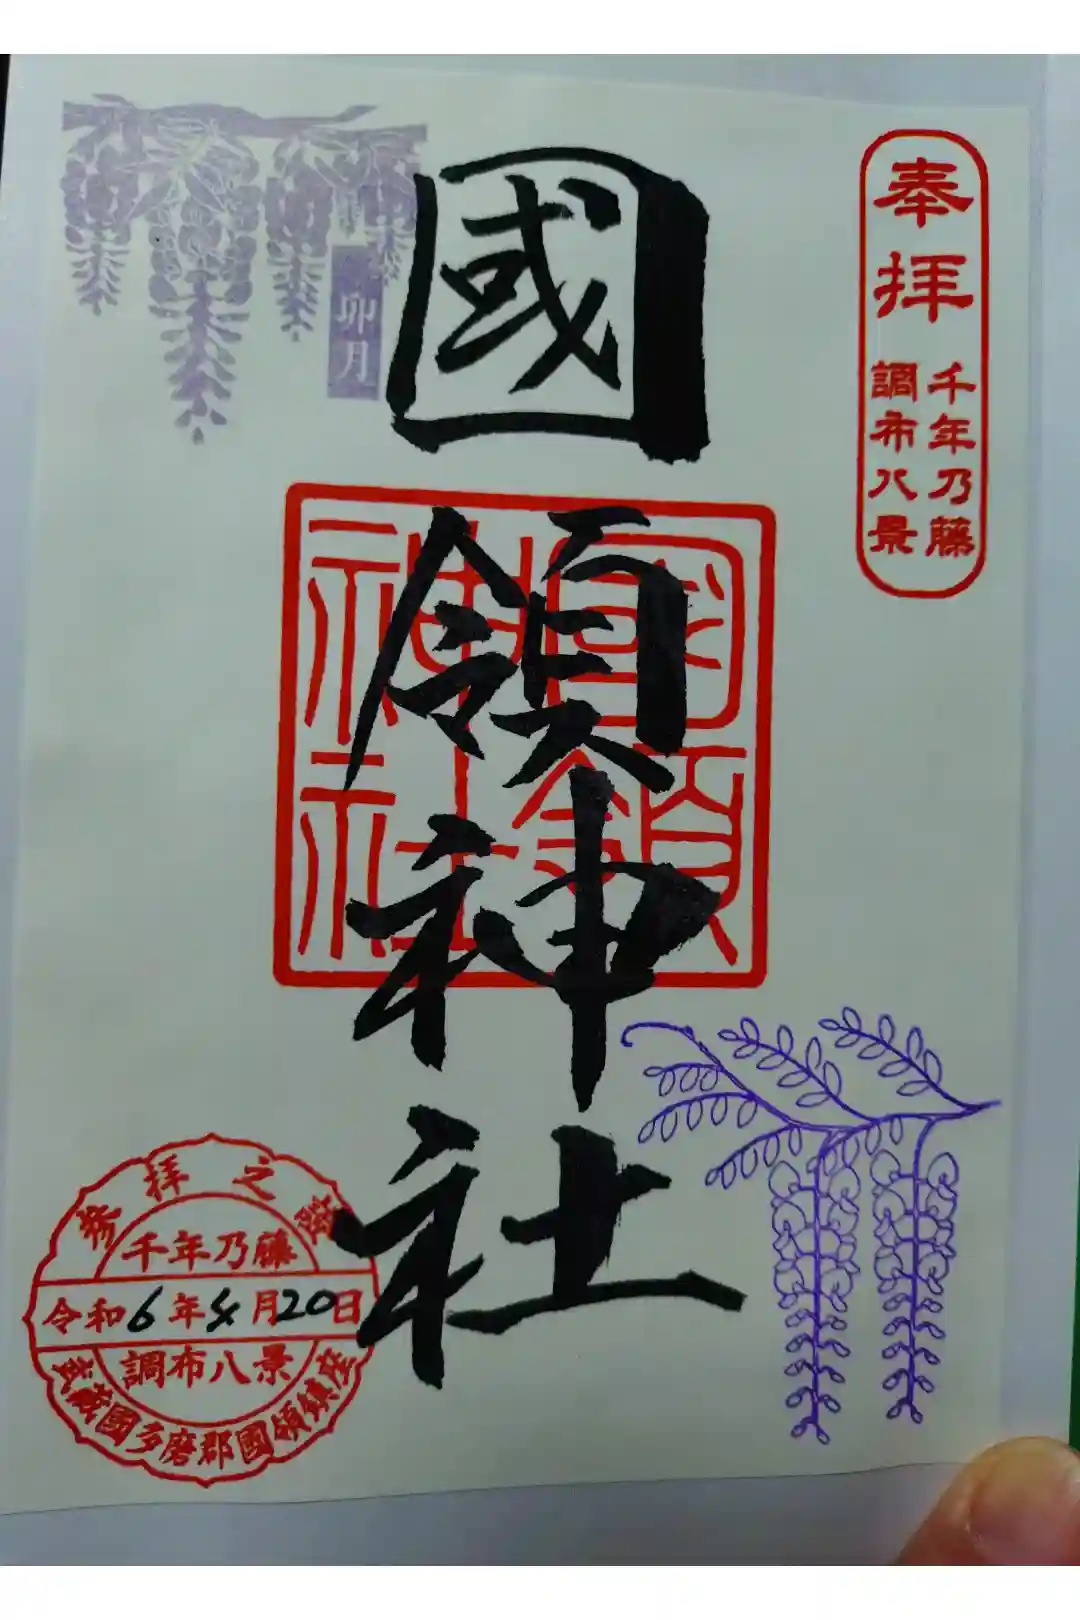 奉拝
千年乃藤
調布八景
國領神社
國領
神社
卯月
参拝之證
千年乃藤
令和6年4月20日
調布八景
武蔵國多磨郡國領鎮座